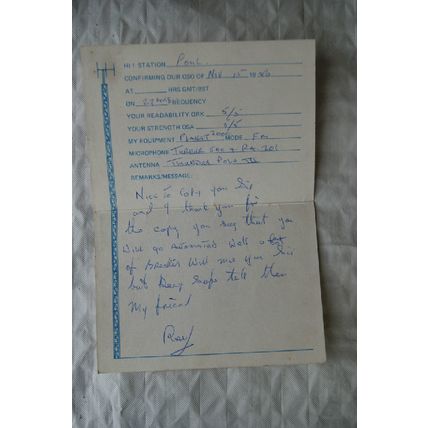 HI! STATION Paul.
CONFIRMING OUR QSO OF Nov 15 1986
AT HRS GMT/BST
ON FREQUENCY
YOUR READABILITY QRK 5/5
YOUR STRENGTH QSA 5/5
MY EQUIPMENT MODE Fm
MICROPHONE
ANTENNA Thunder Pole III
REMARKS/MESSAGE:
Nice to Copy you Sir
and I thank you for
the copy you say that you
will go
of Breaker will miss you Sir
but keep
My friend
Ray